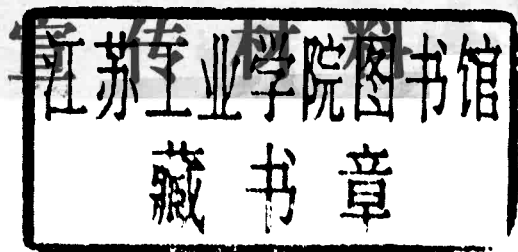 宣传材料
江苏工业学院图书馆
藏书章